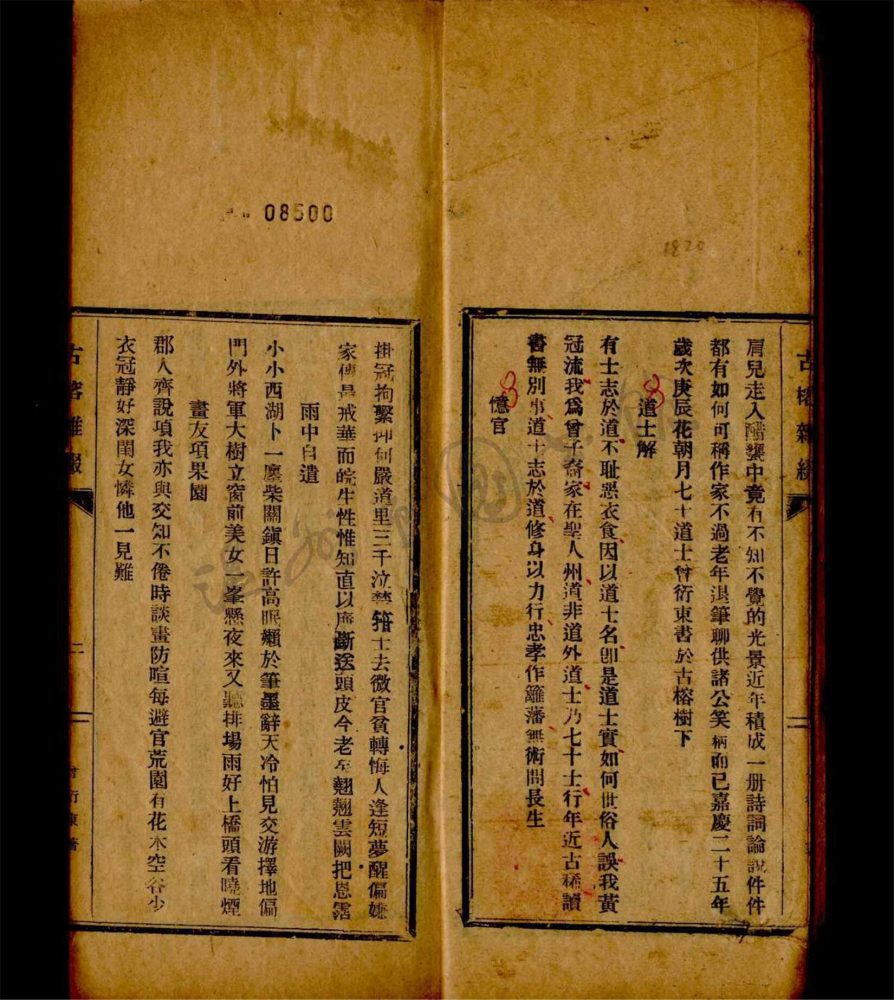 古榕雜綴
肩兒走入醋甕中竟有不知不覺的光景近年積成一册詩詞論說件件
都有如何可稱作家不過老年退筆聊供諸公笑柄而已嘉慶二十五年
歲次庚辰花朝月七十道士曾衍東書於古榕樹下
道士解
有士志於道不耻惡衣食因以道士名卽是道士實如何世俗人誤我黃
冠流我爲曾子裔家在聖人州道非道外道士乃七十士行年近古稀讀
書無別事道士志於道修身以力行忠孝作籬藩無術問長生
憶官
1820
08500
掛冠拘繫抑何嚴道里三千泣楚士去微官貧轉悔人逢短夢醒偏嫌
家傳是戒華而皖生性惟知直以廉斷送頭皮今老矣翹翹雲闕把恩露
雨中自遣
小小西湖卜一廛柴關鎭日許高眠嬾於筆墨辭天冷怕見交游擇地偏
門外將軍大樹立窗前美女一峯懸夜來又聽排場雨好上橋頭看曉煙
畫友項果園
郡人齊說項我亦與交知不倦時談畫防喧每避官荒園有花木空谷少
衣冠靜好深閨女憐他一見難
古榕雜綴
二
曾衍東著